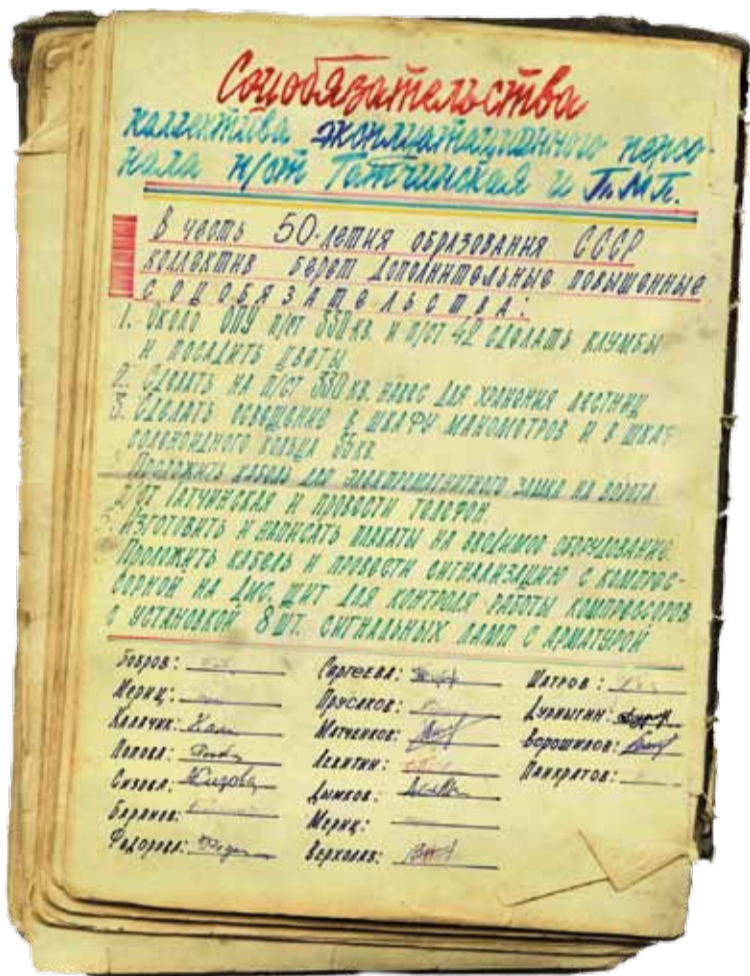 Соцобязательства
коллектива эксплуатационного персо-
нала п/ст Гатчинская и П.М.П.
В честь 50-летия образования СССР
коллектив берет дополнительные повышенные
соцобязательства:
1. Около ОПУ п/ст 330 кв. и п/ст 42 сделать клумбы
и посадить цветы.
2. Сделать на п/ст 330 кв. навес для хранения лестниц
3. Сделать освещение в шкафу манометров и в шкафу
соленоидного кольца 35кв.
Проложить кабель для электромагнитного замка на ворота
п/ст Гатчинская и провести телефон.
Изготовить и написать плакаты на вводимое оборудование.
Проложить кабель и провести сигнализацию с компрес-
сорной на дис. щит для контроля работы компрессоров
с установкой 8 шт. сигнальных ламп с арматурой
Бобров:
Мериц:
Калачик:
Попова:
Сизова: Сизова
Баранов:
Федорова:
Сергеева:
Прусаков:
Матченков:
Левитин:
Дымков:
Мериц:
Верхолаз:
Шатров:
Дурныгин:
Ворошилов:
Панкратов: